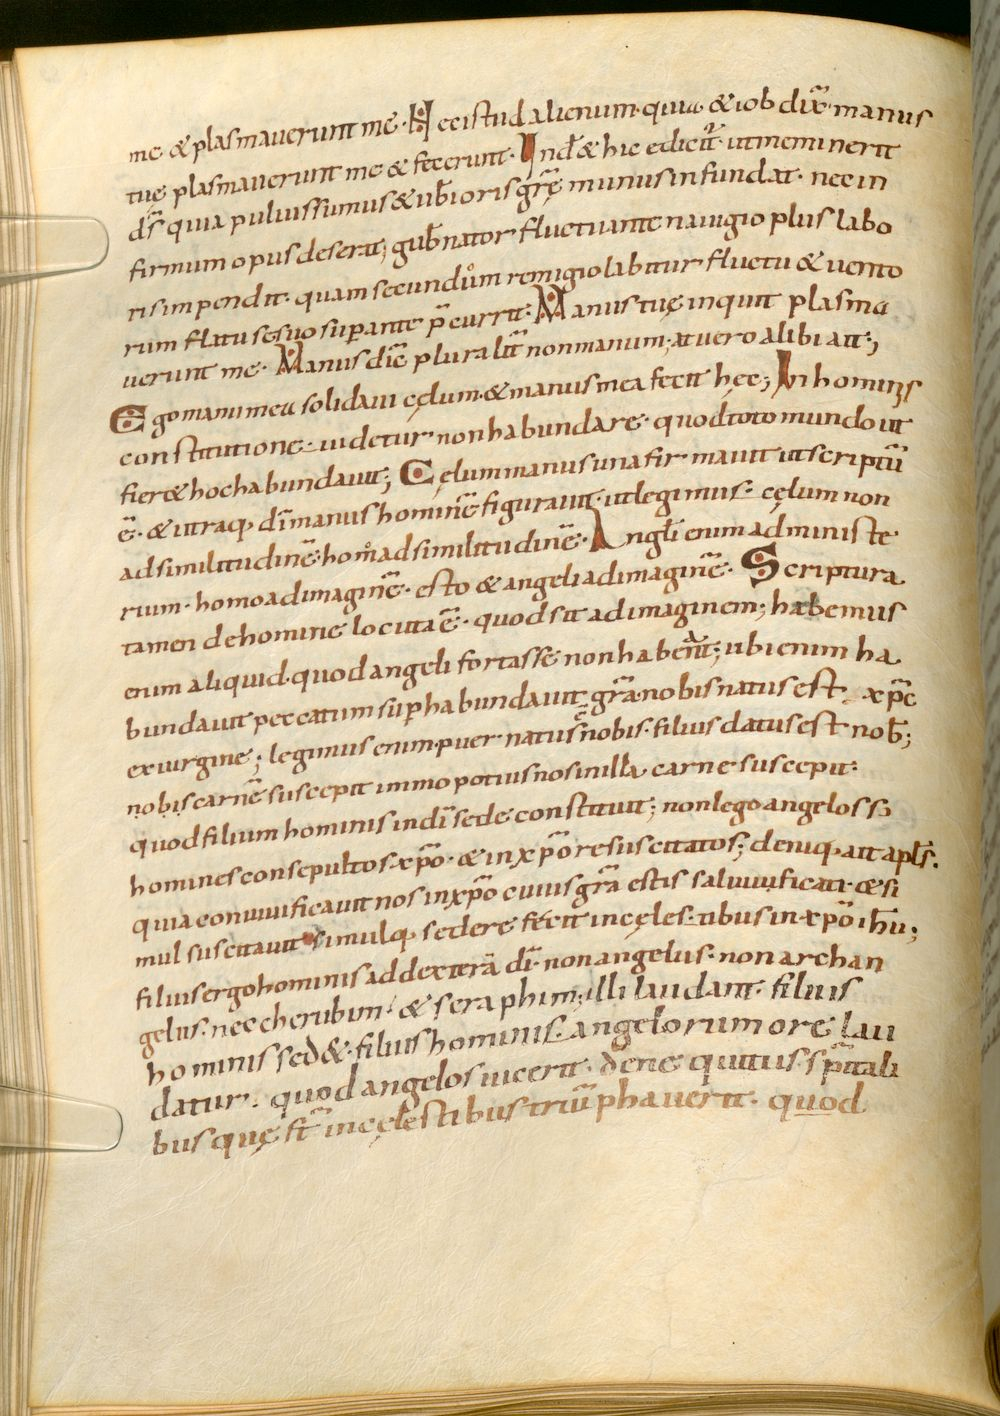 me & plasmaverunt me · Nec istud alienum · quia · & iob dix̄ · manus
tuę plasmaverunt me & fecerunt · Ind̄ & hic edicit̄ · ut meminerit
d̄s quia pulvis sumus & ub̄ioris gr̄ę munus infundat · nec in
firmum opus deserat; gub̄nator fluctuante navigio plus labo
ris inpendit · quam secundū remigio labitur fluctu & vento
rum flatu se suo sup̄ante p̄currit · Manus tuę inquit plasma
verunt me · Manus dic̄ pluralit̄ non manum · at vero alibi ait;
Ego manu mea solidavi cęlum · & manus mea fecit hęc; In hominis
constitutione videtur non habundare · quod toto mundo ut
fier& hoc habundavit; Cęlum manus una firmavit ut scriptū
ē · & utraq; dī manus hominē figuravit · ut legimus · cęlum non
ad similitudinē · homo ad similitudinē · Angeli enim ad ministe
rium · homo ad imaginē · esto & angeli ad imaginē · Scriptura
tamen de homine locuta ē · quod sit ad imaginem; habemus
enim aliquid · quod angeli fortasse non habent; ubi enim ha
bundavit peccatum sup̄habundavit gr̄a · nobis natus est xp̄c
ex virgine; legimus enim · puer natus ē nobis · filius datus est nob̄;
nobis carnē suscepit immo potius nos in illa carne suscepit ·
quod filium hominis in dī sede constituit; non lego angelos s;
homines consepultos xp̄o · & in xp̄o resuscitatos; deniq; ait apl̄s ·
quia convivificavit nos in xp̄o cuius gr̄a estis salvivificati · & si
mul suscitavit simulq; sedere fecit in cęlestibus in xp̄o ih̄u;
filius ergo hominis ad dexterā dī · non angelus · non archan
gelus · nec cherubim · & seraphim; illi laudant · filius
hominis sed & · filius hominis · angelorum ore lau
datur · quod angelos vicerit · deneq̄uitiis · sp̄itali
bus quę s̄t in cęlestibus triūphaverit · quod